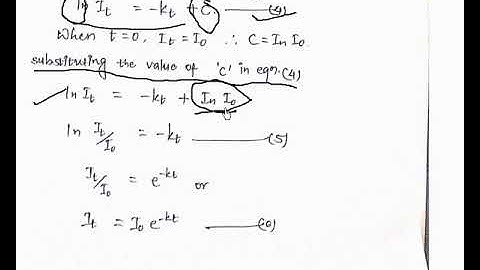 ln It = -kt + C. ——(4)
When t=0, It = Io ∴ C = In Io.
substituting the value of 'C' in eqn.(4)
ln It = -kt + In Io
ln It/Io = -kt ———(5)
It/Io = e^-kt or
It = Io e^-kt ———(6)